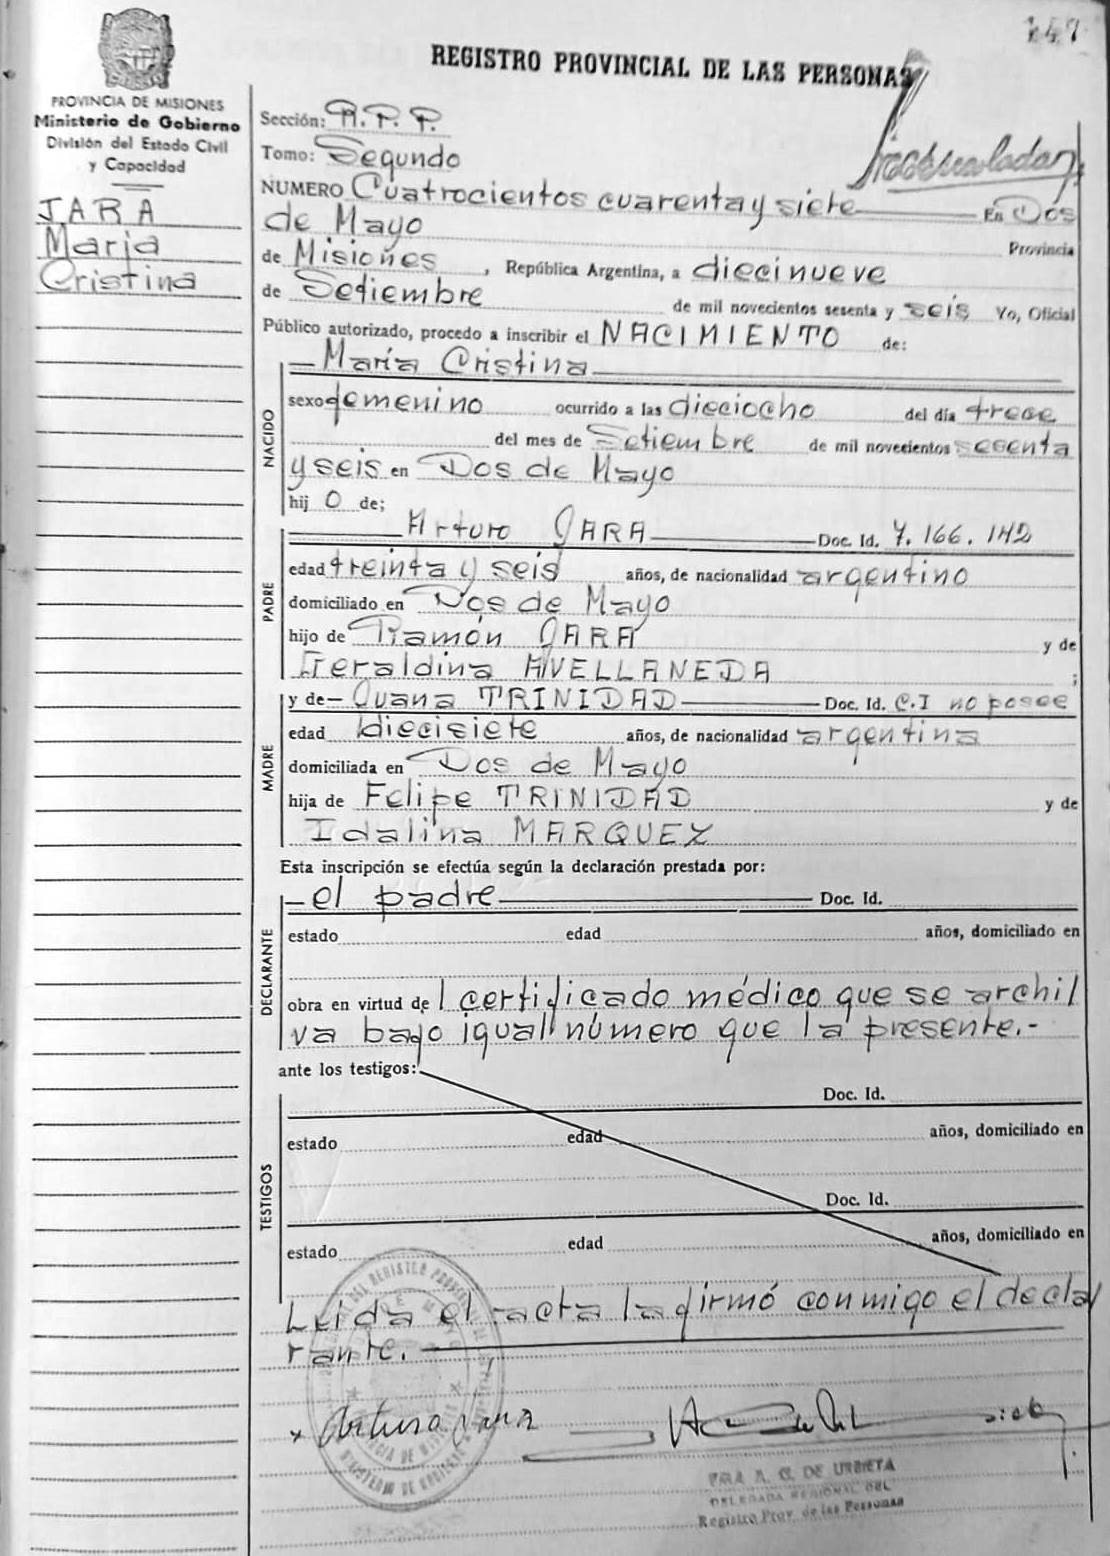 447
REGISTRO PROVINCIAL DE LAS PERSONAS
PROVINCIA DE MISIONES
Ministerio de Gobierno
División del Estado Civil
y Capacidad
JARA
María
Cristina
Sección: R.P.P.
Tomo: Segundo
NUMERO Cuatrocientos cuarenta y siete En Dos
de Mayo Provincia
de Misiones, República Argentina, a diecinueve
de Setiembre de mil novecientos sesenta y seis Yo, Oficial
Público autorizado, procedo a inscribir el NACIMIENTO de:
NACIDO
María Cristina
sexo femenino ocurrido a las dieciocho del día trece
del mes de Setiembre de mil novecientos sesenta
y seis en Dos de Mayo
hij o de;
PADRE
Arturo JARA Doc. Id. 7.166.142
edad treinta y seis años, de nacionalidad argentino
domiciliado en Dos de Mayo
hijo de Ramón JARA y de
Geraldina AVELLANEDA ;
MADRE
y de Juana TRINIDAD Doc. Id. C.I no posee
edad diecisiete años, de nacionalidad argentina
domiciliada en Dos de Mayo
hija de Felipe TRINIDAD y de
Idalina MARQUEZ
Esta inscripción se efectúa según la declaración prestada por:
DECLARANTE
el padre Doc. Id.
estado edad años, domiciliado en
obra en virtud de l certificado médico que se archi
va bajo igual número que la presente.-
ante los testigos:
TESTIGOS
Doc. Id.
estado edad años, domiciliado en
Doc. Id.
estado edad años, domiciliado en
Leída el acta la firmó conmigo el decla
rante.
x Arturo Jara
A. G. DE URBIETA
DELEGADA REGIONAL DEL
Registro Prov. de las Personas